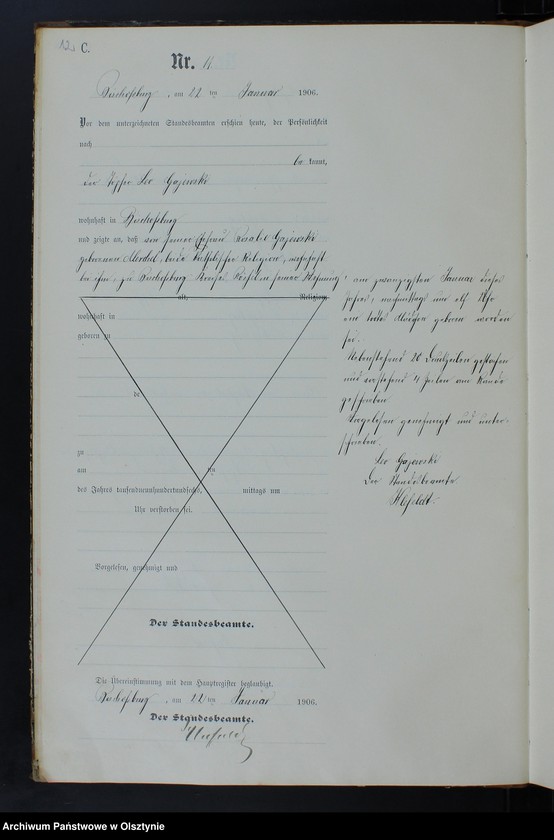 C.
Nr. 11
Bischofsburg, am 22 ten Januar 1906.
Vor dem unterzeichneten Standesbeamten erschien heute, der Persönlichkeit
nach
be kannt,
der Töpfer Leo Gajewski
wohnhaft in Bischofsburg
und zeigte an, daß von seiner Ehefrau Rosalie Gajewski
geborenen, beide katholischer Religion, wohnhaft
bei ihm, zu Bischofsburg Kreises Rößel in seiner Wohnung
am zwanzigsten Januar dieses
Jahres, nachmittags um elf Uhr
ein totes Mädchen geboren worden
sei.
Nebenstehend 20 Druckzeilen gestrichen
und vorstehend 4 Zeilen am Rande
geschrieben
Vorgelesen genehmigt und unter-
schrieben.
Leo Gajewski
Der Standesbeamte
alt, Religion
wohnhaft in
geboren zu
de
zu
am ten
des Jahres tausendneunhundertundsechs, mittags um
Uhr verstorben sei.
Vorgelesen, genehmigt und
Der Standesbeamte.
Die Übereinstimmung mit dem Hauptregister beglaubigt.
Bischofsburg, am 22 ten Januar 1906.
Der Standesbeamte.
Archiwum Państwowe w Olsztynie